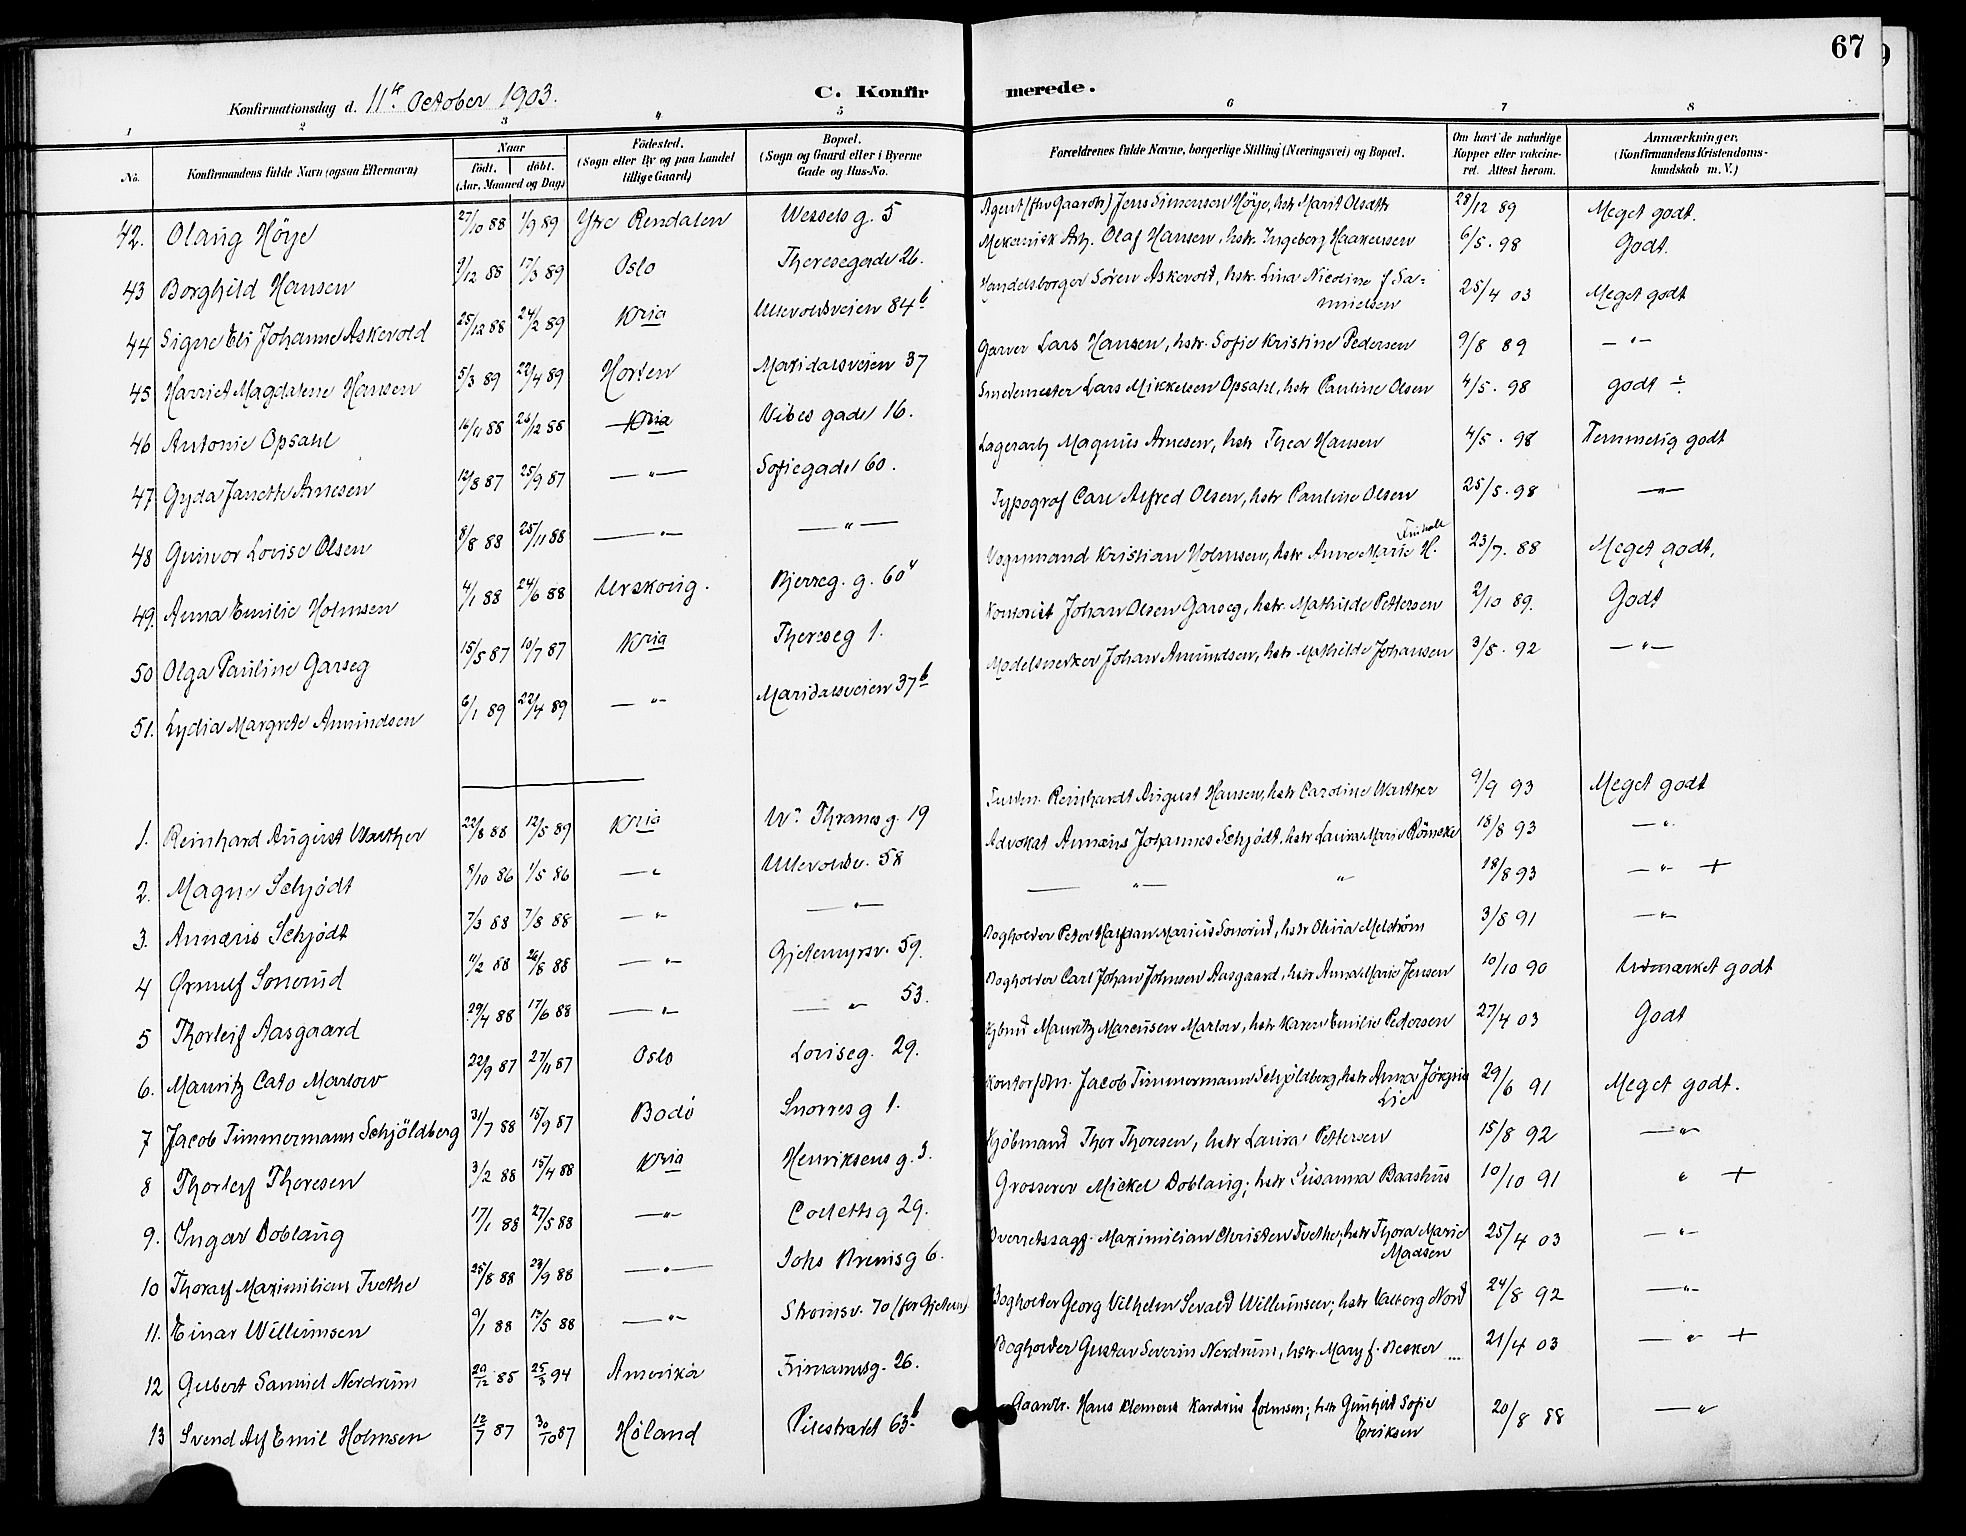 67
Konfirmationsdag d. 11te October 1903.
C. Konfirmerede.
1 2 3 4 5 6 7 8
No. Konfirmandens fulde Navn (ogsaa Efternavn) Naar født, døbt. (Aar, Maaned og Dag) Fødested. (Sogn eller By og paa Landet tillige Gaard) Bopæl. (Sogn og Gaard eller i Byerne Gade og Hus-No. Forældrenes fulde Navne, borgerlige Stilling (Næringsvei) og Bopæl. Om havt de naturlige Kopper eller vakcineret. Attest herom. Anmærkninger, (Konfirmandens Kristendomskundskab m. V.)
42. Olaug Höye 27/10 88 1/9 89 Ytre Rendalen Wessels g. 5 Agent Jens Simensen Höye, hstr Marit Olsdtr 28/12 89 Meget godt.
43 Borghild Hansen 9/12 88 17/3 89 Oslo Theresegade 26. Mekanisk Arb. Olaf Hansen, hstr. Ingeborg Haakensen 6/5. 98 Godt.
44 Signe Eli Johanne Askevold 25/12 88 24/2 89 Kria Ullevoldsveien 84 b Handelsborger Sören Askevold, hstr. Lina Nicoline f Samuelsen 25/4 03 Meget godt
45 Harriet Magdalene Hansen 5/3 89 22/4 89 Horten Maridalsveien 37 Garver Lars Hansen, hstr. Sofie Kristine Pedersen 9/8 89 — " —
46 Antonie Opsahl 16/11 88 26/12 88 Kria Vibes gade 16. Smedemester Lars Mikkelsen Opsahl, hstr Pauline Olsen 4/5. 98 godt ÷
47 Gyda Janette Arnesen 12/8 87 25/9 87 — " — Sofiegade 60. Lagerarb Magnus Arnesen, hstr Thea Hansen 4/5. 98 Temmelig godt
48 Gunvor Lovise Olsen 8/8 88 25/11 88 — " — — " — Typograf Carl Alfred Olsen, hstr Pauline Olsen 25/5. 98 — " —
49. Anna Emilie Holmsen 4/1 88 24/6 88 Urskoug. Bjerreg. g. 60 Vognmand Kristian Holmsen, hstr Anne Marie H. 23/7. 88 Meget godt.
50 Olga Pauline Garseg 15/5 87 10/7 87 Kria Thereseg 1. Kontorist Johan Olsen Garseg, hstr. Mathilde Pettersen 2/10 89. Godt
51. Lydia Margrete Amundsen 6/1 89 22/4 89 — " — Maridalsveien 37 b Modelsnerker Johan Amundsen, hstr Mathilde Johansen 3/5. 92 — " —
1. Reinhard August Walther 22/8 88 12/5 89 Kria W. Thranes g. 19 Reinhardt August Hansen, hstr Caroline Walther 9/9 93 Meget godt
2. Magne Schjödt 8/10 86 1/5 86 — " Ullevoldsv. 58 Advokat Annæus Johannes Schjödt, hstr Laura Marie Römcke 18/8 93 — "
3. Annæus Schjödt 7/3 88 7/8 88 — " — " — — " — " 18/8 93 — " — +
4 Ørnulf Sonerud 11/2 88 26/8 88 — " — Gjetemyrsv. 59. Bogholder Peter Halfdan Marius Sonerud, hstr Olivia Melström 3/8 91 — " —
5 Thorleif Aasgaard 29/4 88 17/6 88 — " — — " 53. Bogholder Carl Johan Johnsen Aasgaard, hstr Anna Marie Jensen 10/10 90 Udmærket godt
6. Mauritz Cato Marlow 22/9 87 27/11 87 Oslo Loviseg. 29. Kjbmd Mauritz Marcusen Marlow, hstr Karen Emilie Pedersen 27/4 03 Godt
7 Jacob Timmermann Schjöldberg 31/7 88 15/9 87 Bodö Snorresg 1. Kontorfdm. Jacob Timmermann Schjöldberg, hstr Anna Jörgine Lie 29/6 91 Meget godt.
8 Thorleif Thoresen 3/2 88 15/4 88 Kria Henriksens g. 3. Kjöbmand Thor Thoresen, hstr Laura Pettersen 15/8 92 — " —
9. Ingar Doblaug 17/1 88 27/5 88 — " — Colletts g 29. Grosserer Mickel Doblaug, hstr Susanna Baashus 10/10 91 " +
10 Thoralf Maximilian Tvethe 25/8 88 23/9 88 — " — Johs Bruns g 6. Overretssagf. Maximilian Christen Tvethe, hstr Thora Marie Madsen 25/4 03 — " —
11. Einar Willumsen 9/1 88 17/5 88 — " 70 Bogholder Georg Vilhelm Sevald Willumsen, hstr Valborg Nord 24/8 92 — " —
12 Gilbert Samuel Nordrum 20/12 85 25/3 94 Amerika 26. Bogholder Gustav Severin Nordrum, hstr. Mary f. Becker 21/4 03 — " — +
13 Svend Alf Emil Holmsen 12/7 87 30/10 87 Höland Pilestrædet 63 b Gaardbr. Hans Klemens Holmsen, hstr Gunhild Sofie Eriksen 20/8 88 — " —